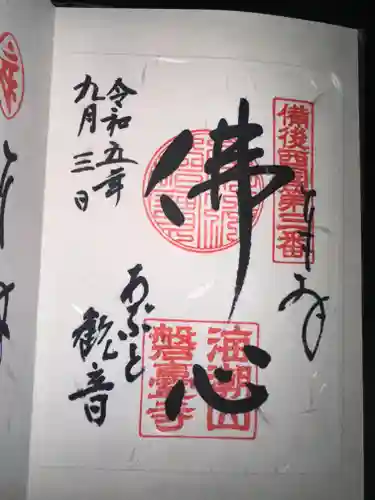 備後西国第三番
奉拝
佛心
海潮山
磐臺寺
あぶと
観音
令和五年
九月三日